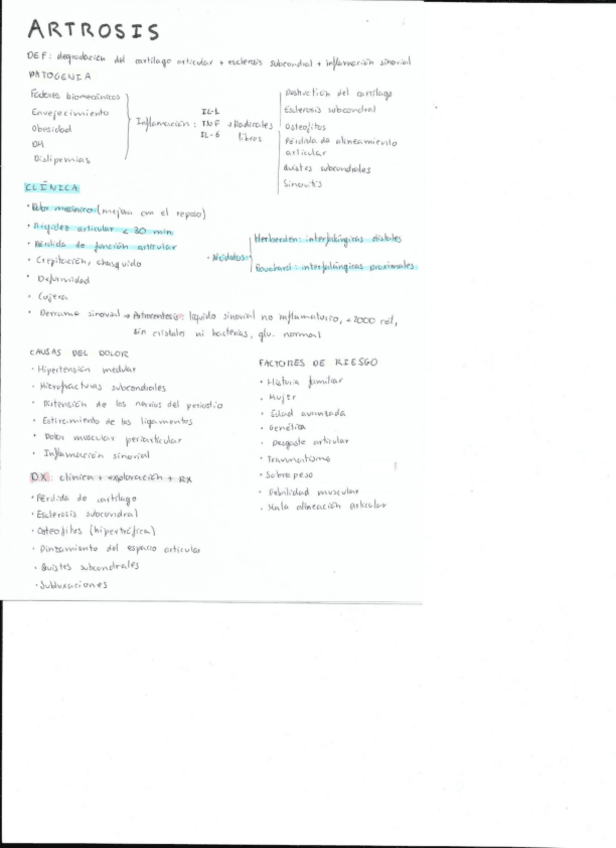 ARTROSIS
DEF: degradación del cartílago articular + esclerosis subcondral + inflamación sinovial
PATOGENIA
Factores biomecánicos
Envejecimiento
Obesidad
DM
Dislipemias
Inflamación: IL-1 TNF IL-6 + Radicales libres
Destrucción del cartílago
Esclerosis subcondral
Osteofitos
Pérdida de alineamiento
articular
Quistes subcondrales
Sinovitis
CLÍNICA
· Dolor mecánico (mejora con el reposo)
· Rigidez articular < 30 min
· Pérdida de función articular
· Crepitación, chasquido
· Deformidad
· Cojera
· Nódulos
Herberden: interfalángicas distales
Bouchard: interfalángicas proximales
· Derrame sinovial → Artrocentesis: líquido sinovial no inflamatorio, <2000 cél,
sin cristales ni bacterias, glu. normal
CAUSAS DEL DOLOR
· Hipertensión medular
· Microfracturas subcondrales
· Distensión de los nervios del periostio
· Estiramiento de los ligamentos
· Dolor muscular periarticular
· Inflamación sinovial
FACTORES DE RIESGO
· Historia familiar
· Mujer
· Edad avanzada
· Genética
· Desgaste articular
· Traumatismo
· Sobrepeso
· Debilidad muscular
· Mala alineación articular
DX: clínica + exploración + RX
· Pérdida de cartílago
· Esclerosis subcondral
· Osteofitos (hipertrófica)
· Pinzamiento del espacio articular
· Quistes subcondrales
· Subluxaciones